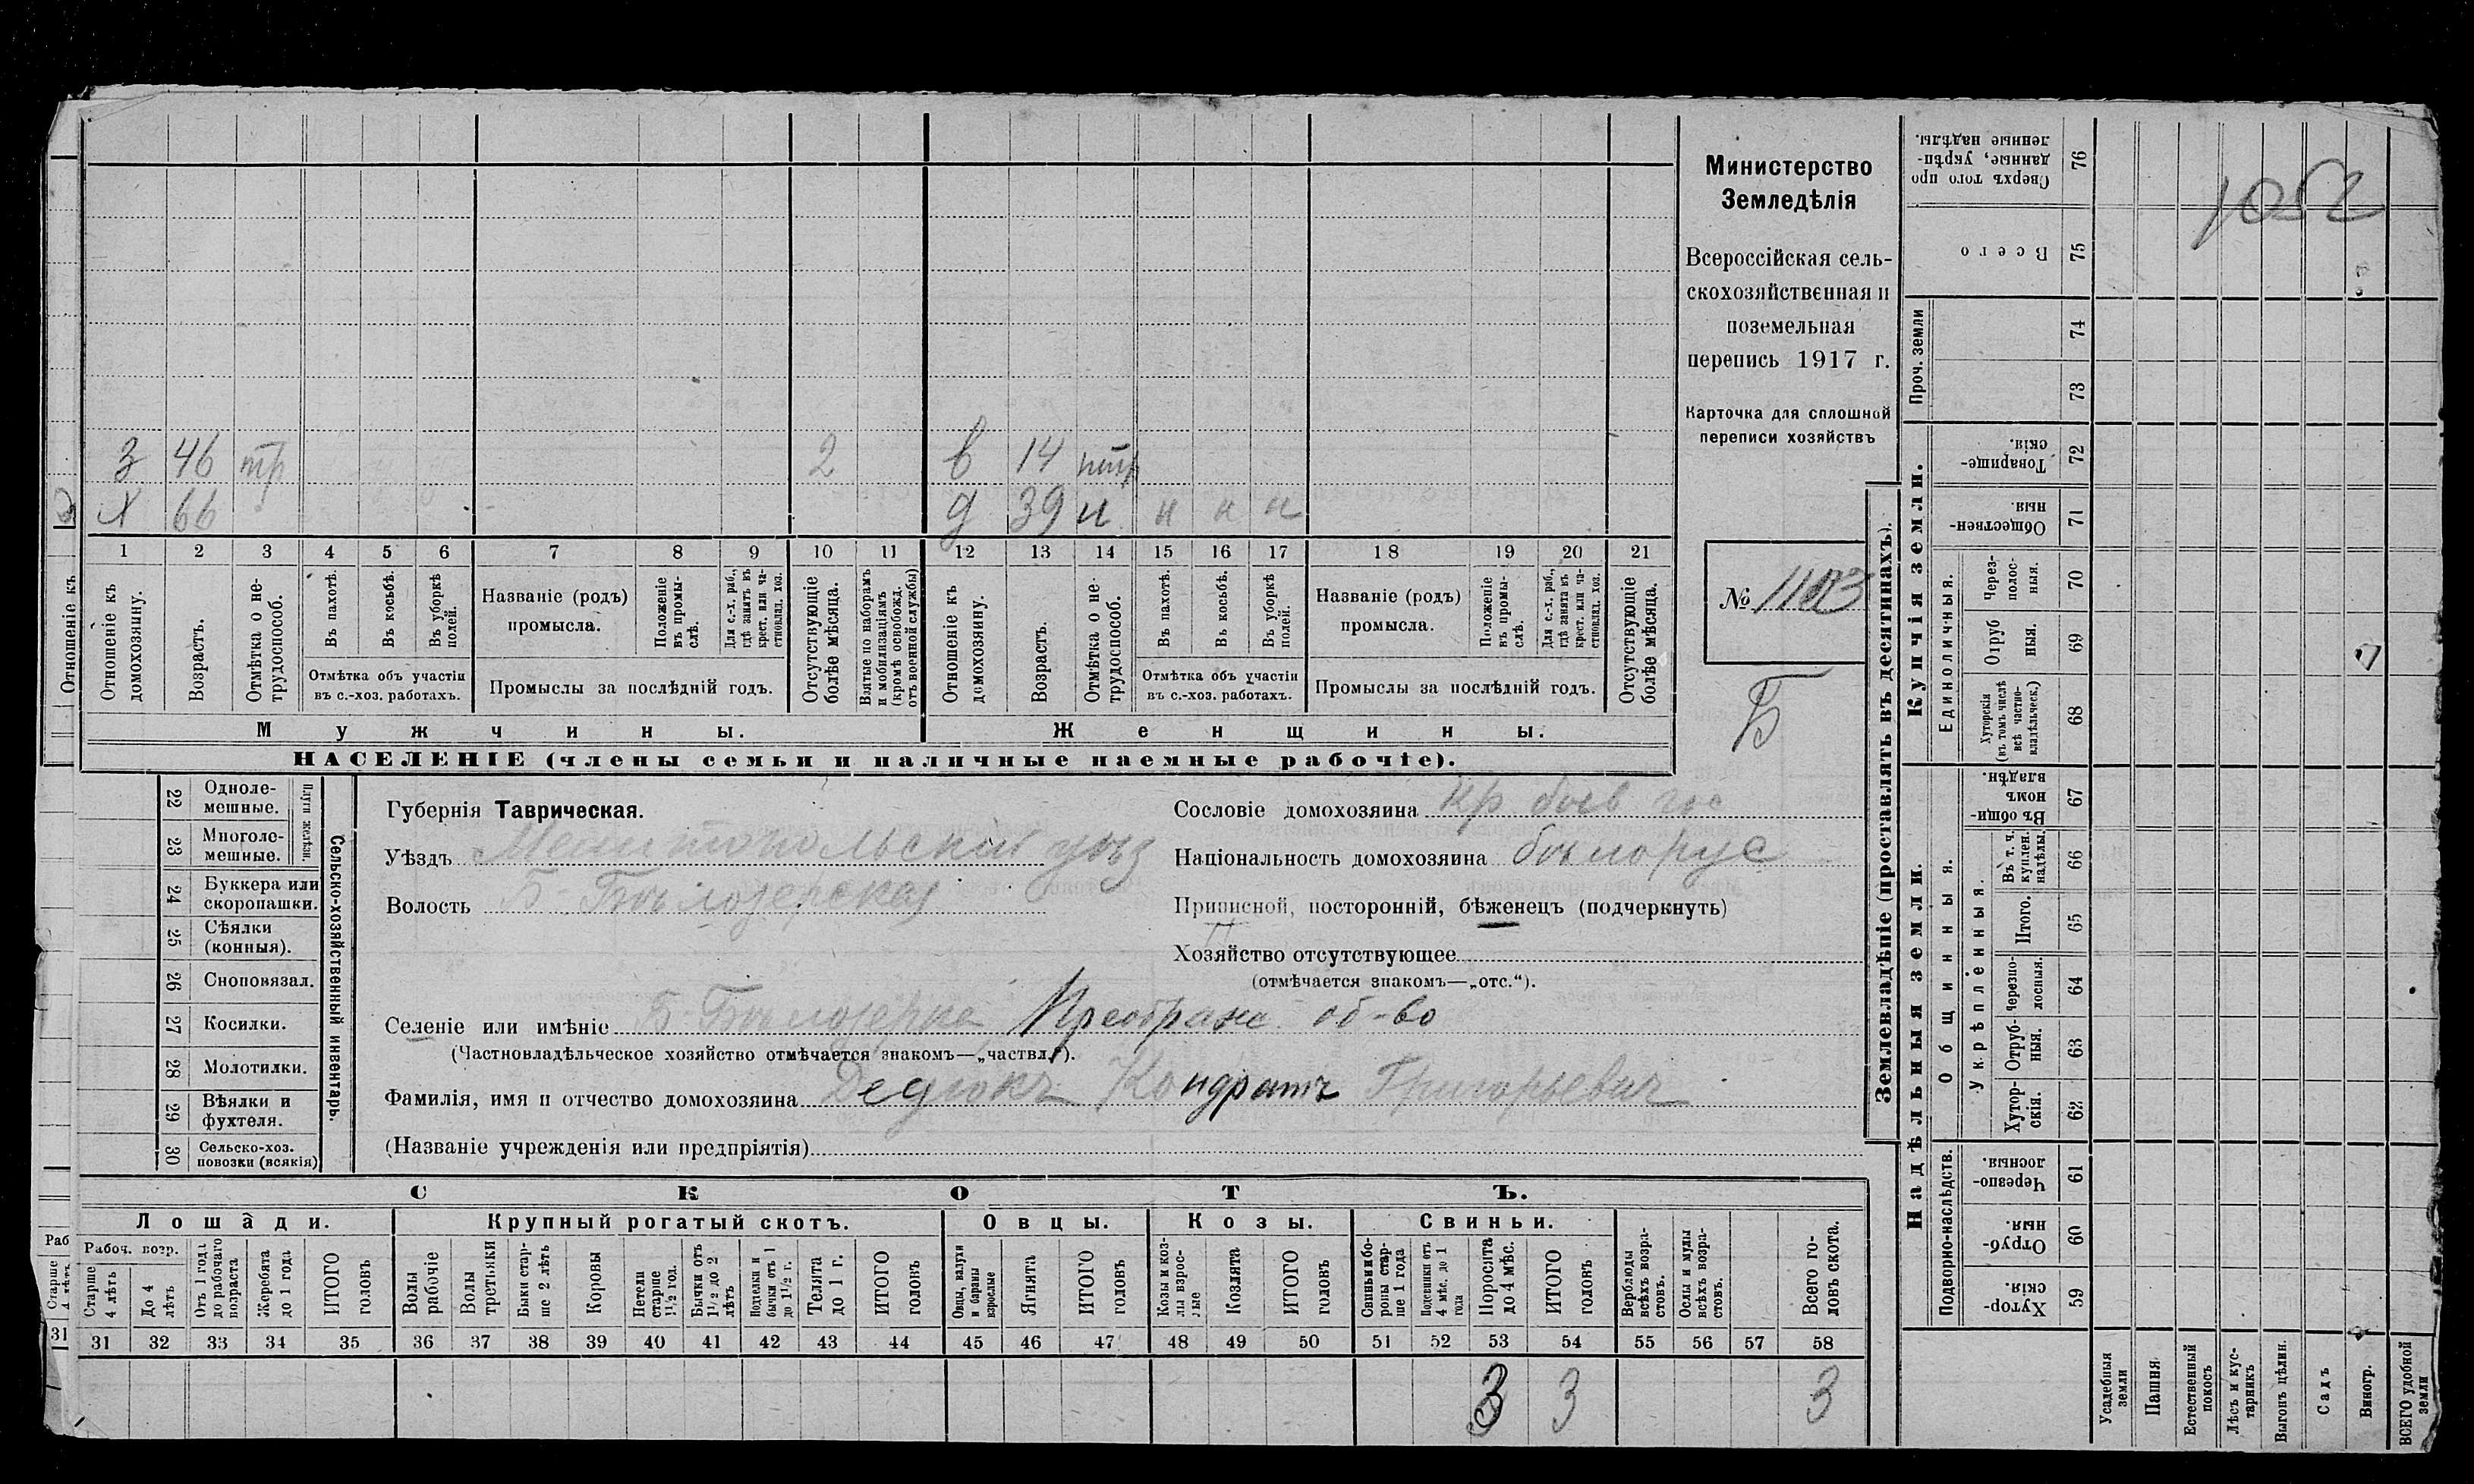 Министерство
Земледѣлія
Всероссійская сель-
скохозяйственная и
поземельная
перепись 1917 г.
Карточка для сплошной
переписи хозяйствъ
№ 1103
Б
1052
З 46 тр 2 в 14 птр
Х 66 д 39 н н н н
1 2 3 4 5 6 7 8 9 10 11 12 13 14 15 16 17 18 19 20 21
Отношеніе къ домохозяину.
Возрастъ.
Отмѣтка о не-трудоспособ.
Въ пахотѣ.
Въ косьбѣ.
Въ уборкѣ полей.
Отмѣтка объ участіи
въ с.-хоз. работахъ.
Названіе (родъ)
промысла.
Положеніе въ промы-слѣ.
Для с.-х. раб., гдѣ занятъ въ крест. или ча-стновлад. хоз.
Промыслы за послѣдній годъ.
Отсутствующіе болѣе мѣсяца.
Взятые по наборамъ и мобилизаціямъ (кромѣ освобожд. отъ военной службы)
Отношеніе къ домохозяину.
Возрастъ.
Отмѣтка о не-трудоспособ.
Въ пахотѣ.
Въ косьбѣ.
Въ уборкѣ полей.
Отмѣтка объ участіи
въ с.-хоз. работахъ.
Названіе (родъ)
промысла.
Положеніе въ промы-слѣ.
Для с.-х. раб., гдѣ занята въ крест. или ча-стновлад. хоз.
Промыслы за послѣдній годъ.
Отсутствующіе болѣе мѣсяца.
Мужчины. Женщины.
НАСЕЛЕНІЕ (члены семьи и наличные наемные рабочіе).
22 Одноле-мешные.
23 Многоле-мешные.
Плуги желѣзн.
24 Буккера или скоропашки.
25 Сѣялки (конныя).
26 Сноповязал.
27 Косилки.
28 Молотилки.
29 Вѣялки и фухтеля.
30 Сельско-хоз. повозки (всякія)
Сельско-хозяйственный инвентарь.
Губернія Таврическая.
Уѣздъ Мелитопольскій уѣз
Волость Б-Бѣлозерская
Сословіе домохозяина кр.
Національность домохозяина бѣлорус
Приписной, посторонній, бѣженецъ (подчеркнуть)
Хозяйство отсутствующее
(отмѣчается знакомъ—„отс.“).
Селеніе или имѣніе Б-Бѣлозерка Преображ. об-во
(Частновладѣльческое хозяйство отмѣчается знакомъ—„частвл.“).
Фамилія, имя и отчество домохозяина Дедюкъ Кондратъ Григорьевич
(Названіе учрежденія или предпріятія)
СКОТЪ.
Лошади. Крупный рогатый скотъ. Овцы. Козы. Свиньи.
Рабоч. возр.
Старше 4 лѣтъ
До 4 лѣтъ
Отъ 1 года до рабочаго возраста
Жеребята до 1 года
ИТОГО головъ
Волы рабочіе
Волы третьяки
Быки стар-ше 2 лѣтъ
Коровы
Нетели старше 1½ год.
Бычки отъ 1½ до 2 лѣтъ
Подтелки и бычки отъ 1 до 1½ г.
Телята до 1 г.
ИТОГО головъ
Овцы, валухи и бараны взрослые
Ягнята
ИТОГО головъ
Козы и коз-лы взрос-лые
Козлята
ИТОГО головъ
Свиньи и бо-ровы стар-ше 1 года
Подсвинки отъ 4 мѣс. до 1 года
Поросята до 4 мѣс.
ИТОГО головъ
Верблюды всѣхъ возра-стовъ.
Ослы и мулы всѣхъ возра-стовъ.
Всего го-ловъ скота.
31 32 33 34 35 36 37 38 39 40 41 42 43 44 45 46 47 48 49 50 51 52 53 54 55 56 57 58
3 3 3
Землевладѣніе (проставлять въ десятинахъ).
Купчія земли.
Надѣльныя земли.
Сверхъ того про-данные, укрѣп-ленные надѣлы. 76
Всего 75
Проч. земли 74 73
Товарище-скія. 72
Обществен-ныя 71
Единоличныя.
Через-полос-ныя. 70
Отруб-ныя. 69
Хуторскія (въ томъ числѣ всѣ частно-владѣльческ.) 68
Въ общи-номъ владѣн. 67
Общинныя.
Укрѣпленныя.
Въ т. ч. куплен. надѣлы. 66
Итого. 65
Черезпо-лосныя. 64
Отруб-ныя. 63
Хутор-скія. 62
Подворно-наслѣдств.
Черезпо-лосныя. 61
Отруб-ныя. 60
Хутор-скія. 59
Усадебныя земли
Пашня
Естественный покосъ
Лѣсъ и кус-тарникъ
Выгонъ цѣлин.
Садъ
Виногр.
ВСЕГО удобной земли
Отношеніе къ
Раб
Старше 4 лѣтъ
31